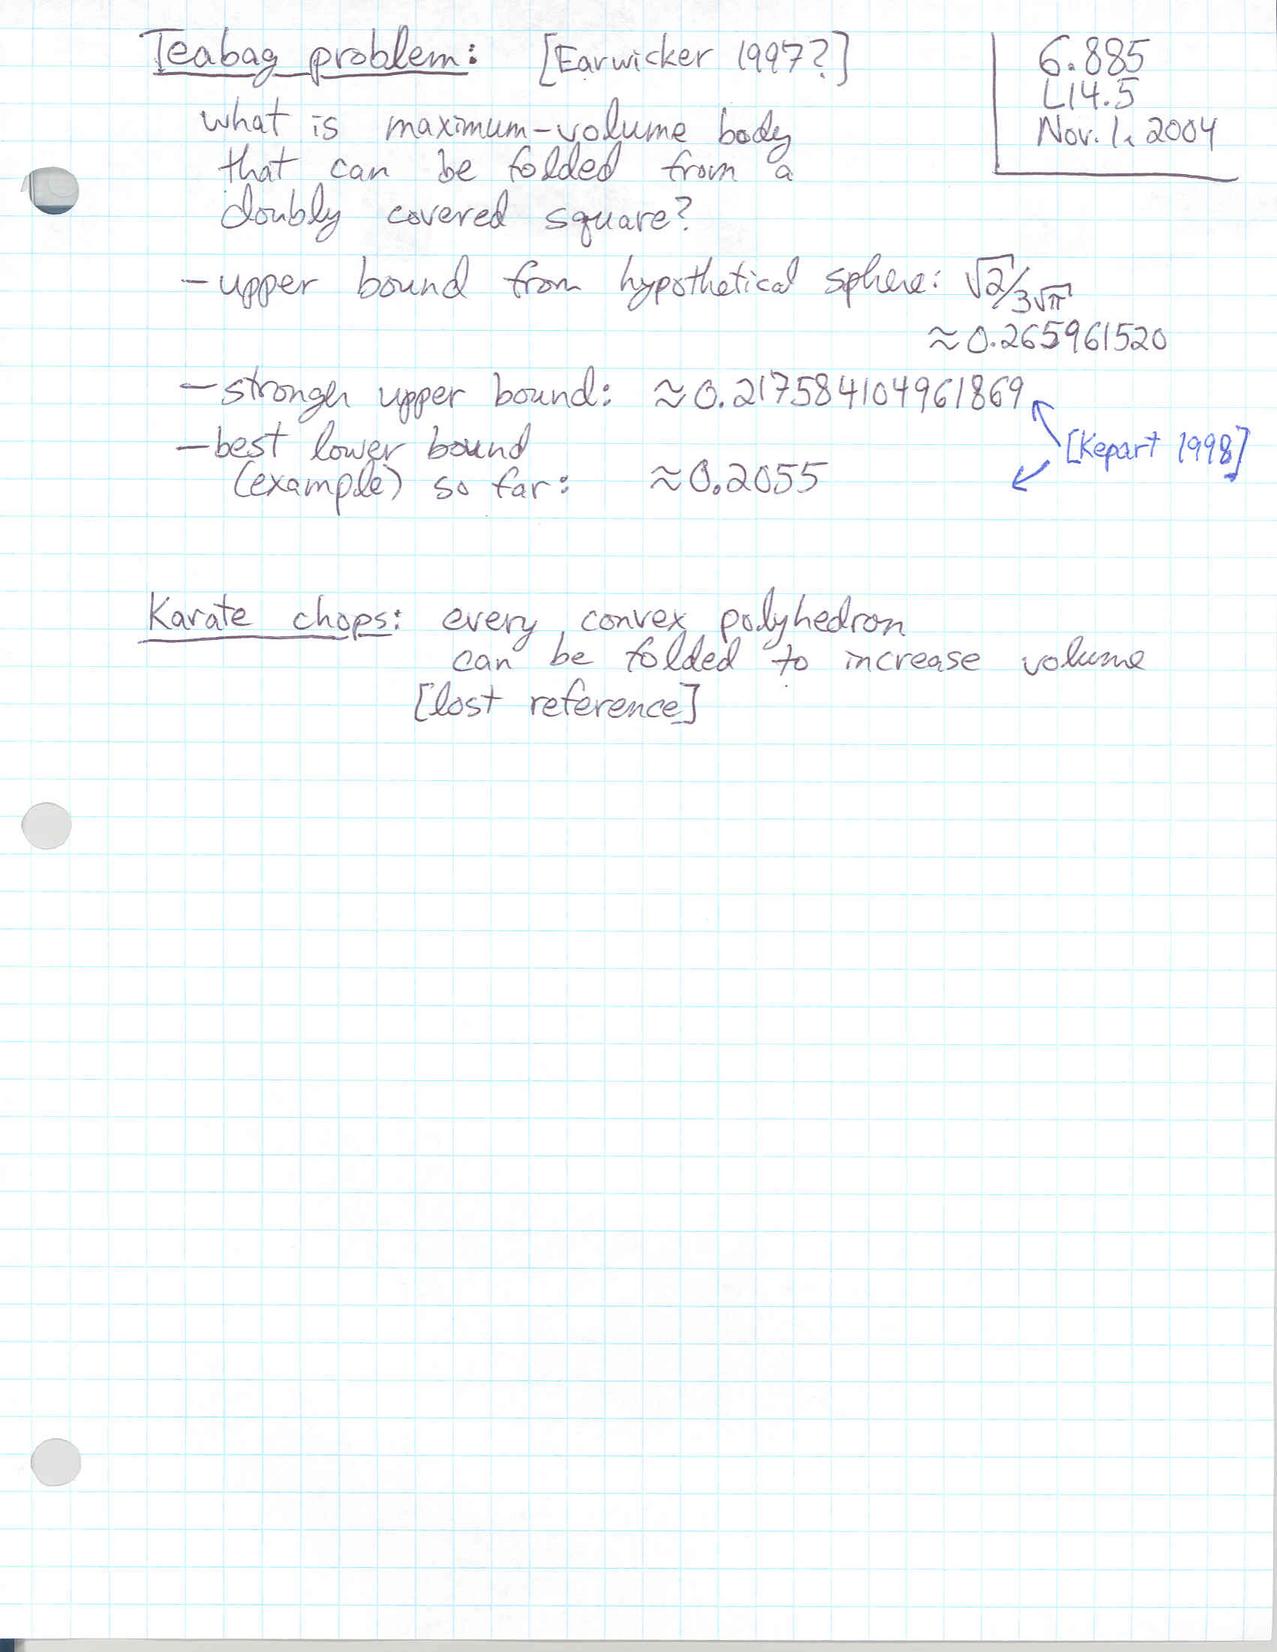 Teabag problem: [Earwicker 1997?]
6.885
L14.5
Nov. 1, 2004
what is maximum-volume body
that can be folded from a
doubly covered square?
- upper bound from hypothetical sphere: √2/3√π
≈ 0.265961520
- stronger upper bound: ≈ 0.217584104961869
- best lower bound
(example) so far: ≈ 0.2055
[Kepart 1998]
Karate chops: every convex polyhedron
can be folded to increase volume
[lost reference]